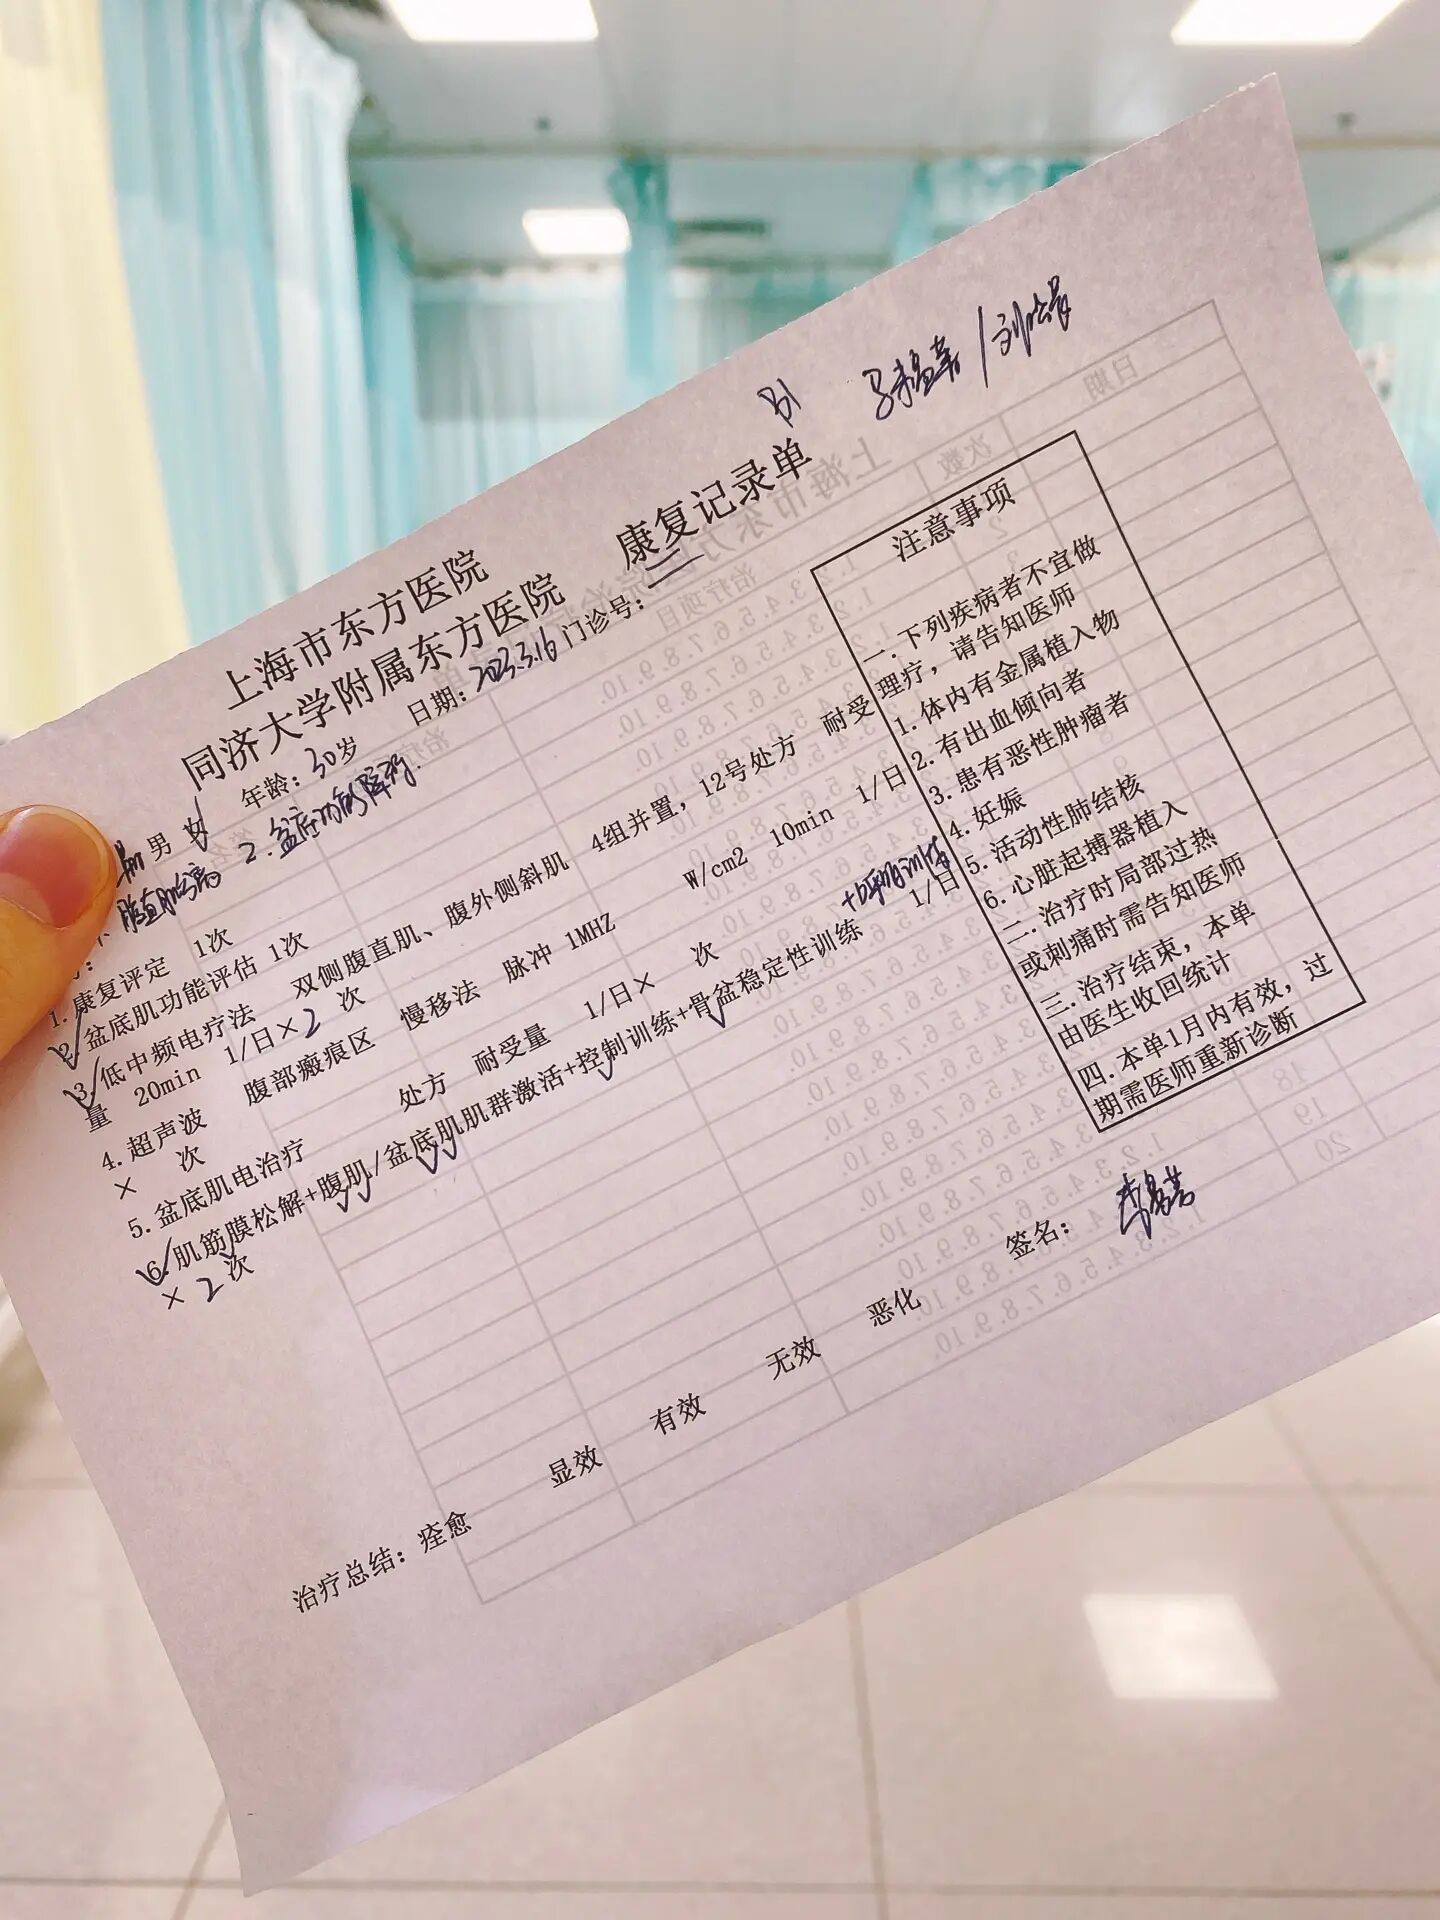 B1
上海市东方医院
同济大学附属东方医院 康复记录单
男 女 年龄：30岁 日期：2023.3.16 门诊号：
腹直肌分离 2.盆底功能障碍.
1.康复评定 1次
2.盆底肌功能评估 1次
3.低中频电疗法 双侧腹直肌、腹外侧斜肌 4组并置，12号处方 耐受
量 20min 1/日×2 次
4.超声波 腹部瘢痕区 慢移法 脉冲 1MHZ W/cm2 10min 1/日
× 次
5.盆底肌电治疗 处方 耐受量 1/日× 次
+呼吸训练
6.肌筋膜松解+腹肌/盆底肌肌群激活+控制训练+骨盆稳定性训练 1/日
×2次
注意事项
一.下列疾病者不宜做
理疗，请告知医师
1.体内有金属植入物
2.有出血倾向者
3.患有恶性肿瘤者
4.妊娠
5.活动性肺结核
6.心脏起搏器植入
二.治疗时局部过热
或刺痛时需告知医师
三.治疗结束，本单
由医生收回统计
四.本单1月内有效，过
期需医师重新诊断
签名：
治疗总结：痊愈 显效 有效 无效 恶化